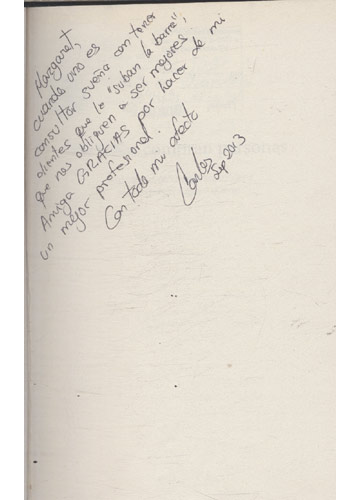 Margaret,
cuando uno es
consultor sueña con tener
clientes que le "suban la barra",
que nos obliguen a ser mejores.
Amiga GRACIAS por hacer de mi
un mejor profesional.
Con todo mi afecto
Carlos
Sep 2013